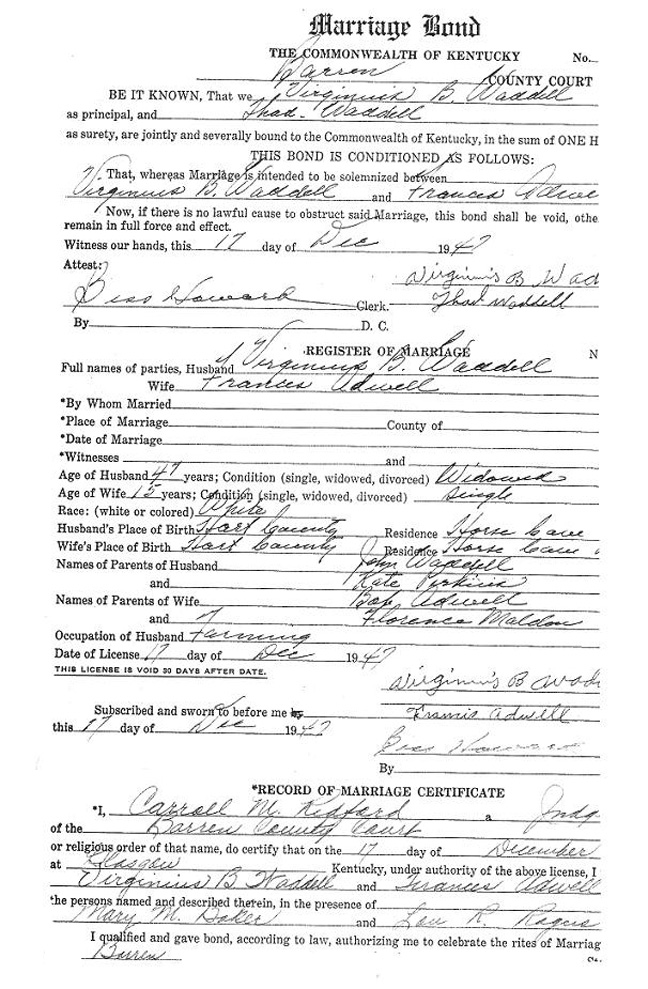 Marriage Bond
THE COMMONWEALTH OF KENTUCKY No.
Barren COUNTY COURT
BE IT KNOWN, That we Virginius B. Waddell
as principal, and Thad. Waddell
as surety, are jointly and severally bound to the Commonwealth of Kentucky, in the sum of ONE H
THIS BOND IS CONDITIONED AS FOLLOWS:
That, whereas Marriage is intended to be solemnized between
Virginius B. Waddell and Frances Adwe
Now, if there is no lawful cause to obstruct said Marriage, this bond shall be void, othe
remain in full force and effect.
Witness our hands, this 17 day of Dec 1947
Attest: Virginius B Wad
Bess Howard Clerk. Thad Waddell
By D. C.
REGISTER OF MARRIAGE N
Full names of parties, Husband Virginius B. Waddell
Wife Frances Adwell
*By Whom Married
*Place of Marriage County of
*Date of Marriage
*Witnesses and
Age of Husband 47 years; Condition (single, widowed, divorced) Widowed
Age of Wife 15 years; Condition (single, widowed, divorced) Single
Race: (white or colored) White
Husband's Place of Birth Hart County Residence Horse Cave
Wife's Place of Birth Hart County Residence Horse Cave
Names of Parents of Husband John Waddell
and Kate Perkins
Names of Parents of Wife Bob Adwell
and Florence Maldon
Occupation of Husband Farming
Date of License 17 day of Dec 1947
THIS LICENSE IS VOID 30 DAYS AFTER DATE.
Virginius B Wad
Subscribed and sworn to before me by Francis Adwell
this 17 day of Dec 1947
Bess Howard
By
*RECORD OF MARRIAGE CERTIFICATE
*I, Carroll M. Redford a Judg
of the Barren County Court
or religious order of that name, do certify that on the 17 day of December
at Glasgow Kentucky, under authority of the above license, I
Virginius B Waddell and Frances Adwell
the persons named and described therein, in the presence of
Mary M. Baker and Lou R.
I qualified and gave bond, according to law, authorizing me to celebrate the rites of Marriag
Barren